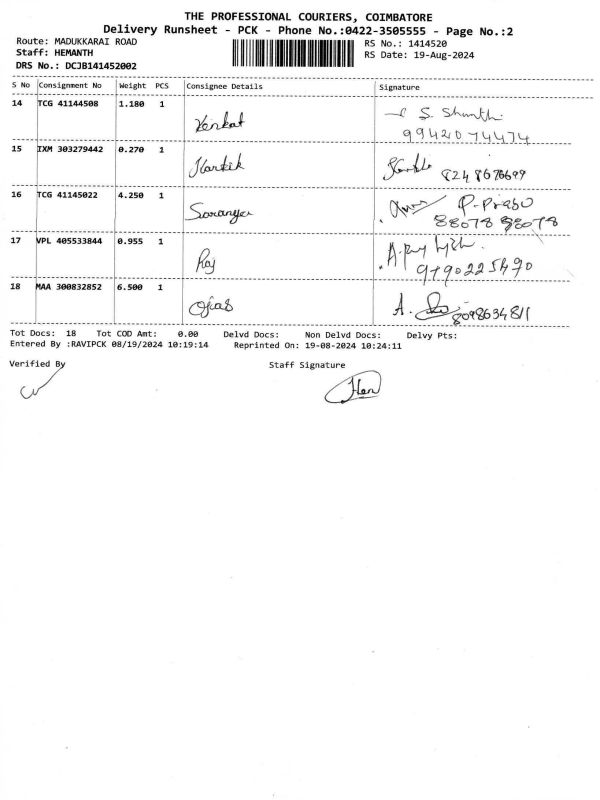 THE PROFESSIONAL COURIERS, COIMBATORE
Delivery Runsheet - PCK - Phone No.:0422-3505555 - Page No.:2
Route: MADUKKARAI ROAD
RS No.: 1414520
Staff: HEMANTH
RS Date: 19-Aug-2024
DRS No.: DCJB141452002
S No Consignment No Weight PCS Consignee Details Signature
14 TCG 41144508 1.180 1 Venkat S. Shanthi
9942074474
15 IXM 303279442 0.270 1 Kartik 8248676699
16 TCG 41145022 4.250 1 Saranya P. Prabu
88078 98078
17 VPL 405533844 0.955 1 Raj
9790225490
18 MAA 300832852 6.500 1 Ojas A.
8098634811
Tot Docs: 18 Tot COD Amt: 0.00 Delvd Docs: Non Delvd Docs: Delvy Pts:
Entered By :RAVIPCK 08/19/2024 10:19:14 Reprinted On: 19-08-2024 10:24:11
Verified By Staff Signature
Hem